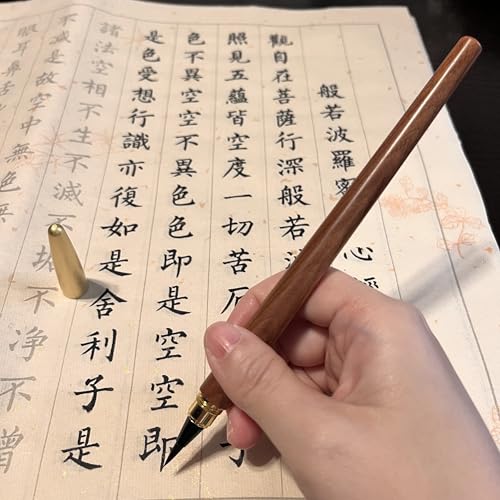 般若波羅蜜心經
觀自在菩薩行深般若波
照見五蘊皆空度一切苦厄子
色不異空空不異色色即是空空即
是色受想行識亦復如是舍利子是
諸法空相不生不滅不垢不净不增
不滅是故空中無色無
眼耳鼻舌